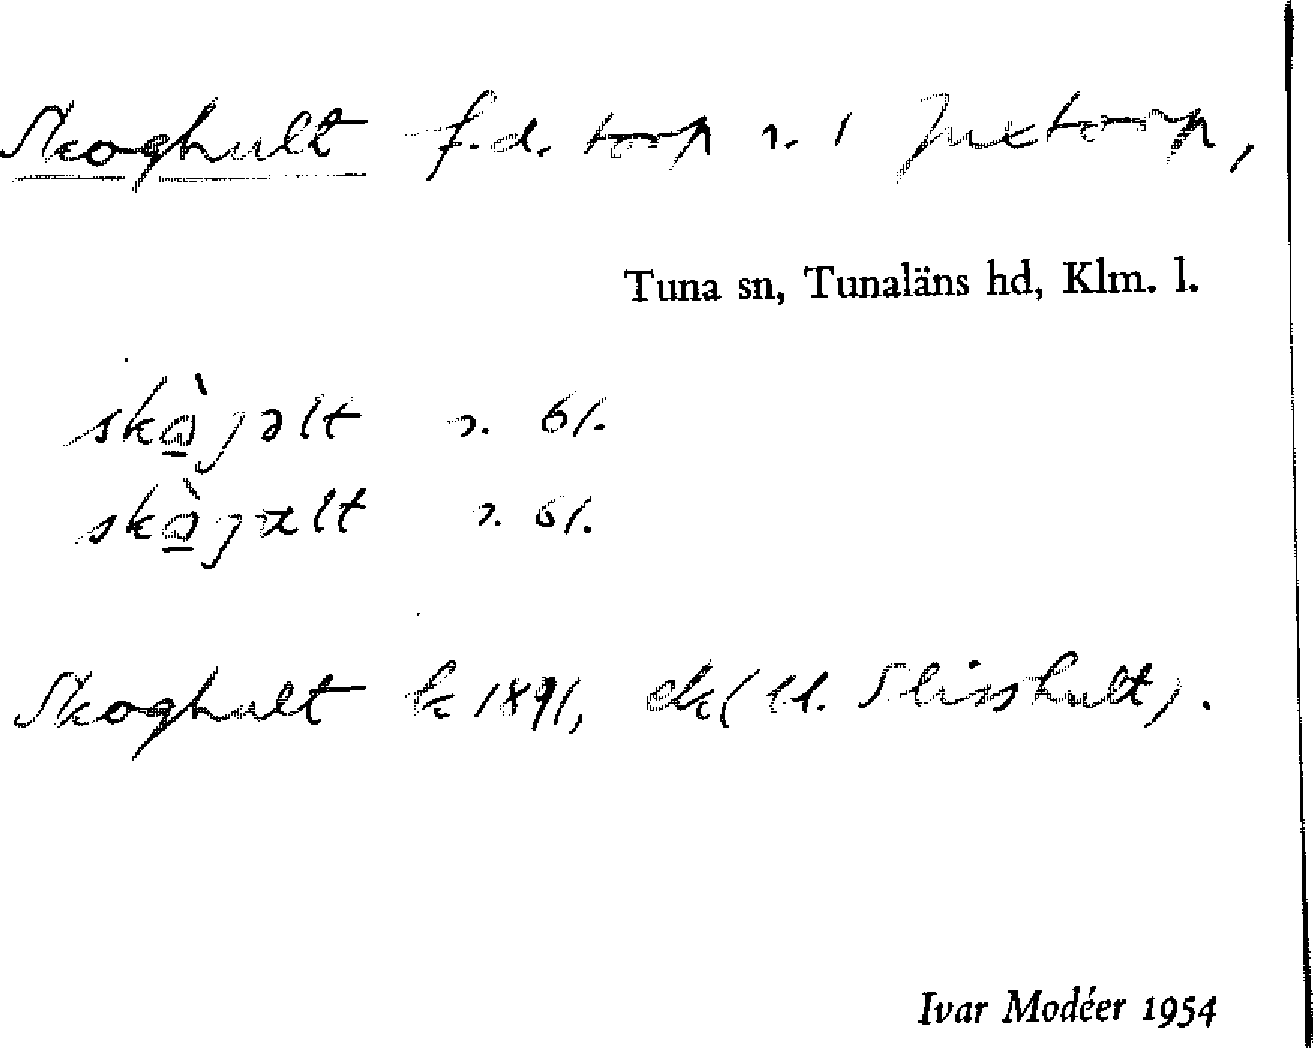 Skoghult f.d. torp n. 1 Juxtorp,
Tuna sn, Tunaläns hd, Klm. l.
skògəlt
skògælt
Skoghult k 1891, ek( Slisshult).
Ivar Modéer 1954